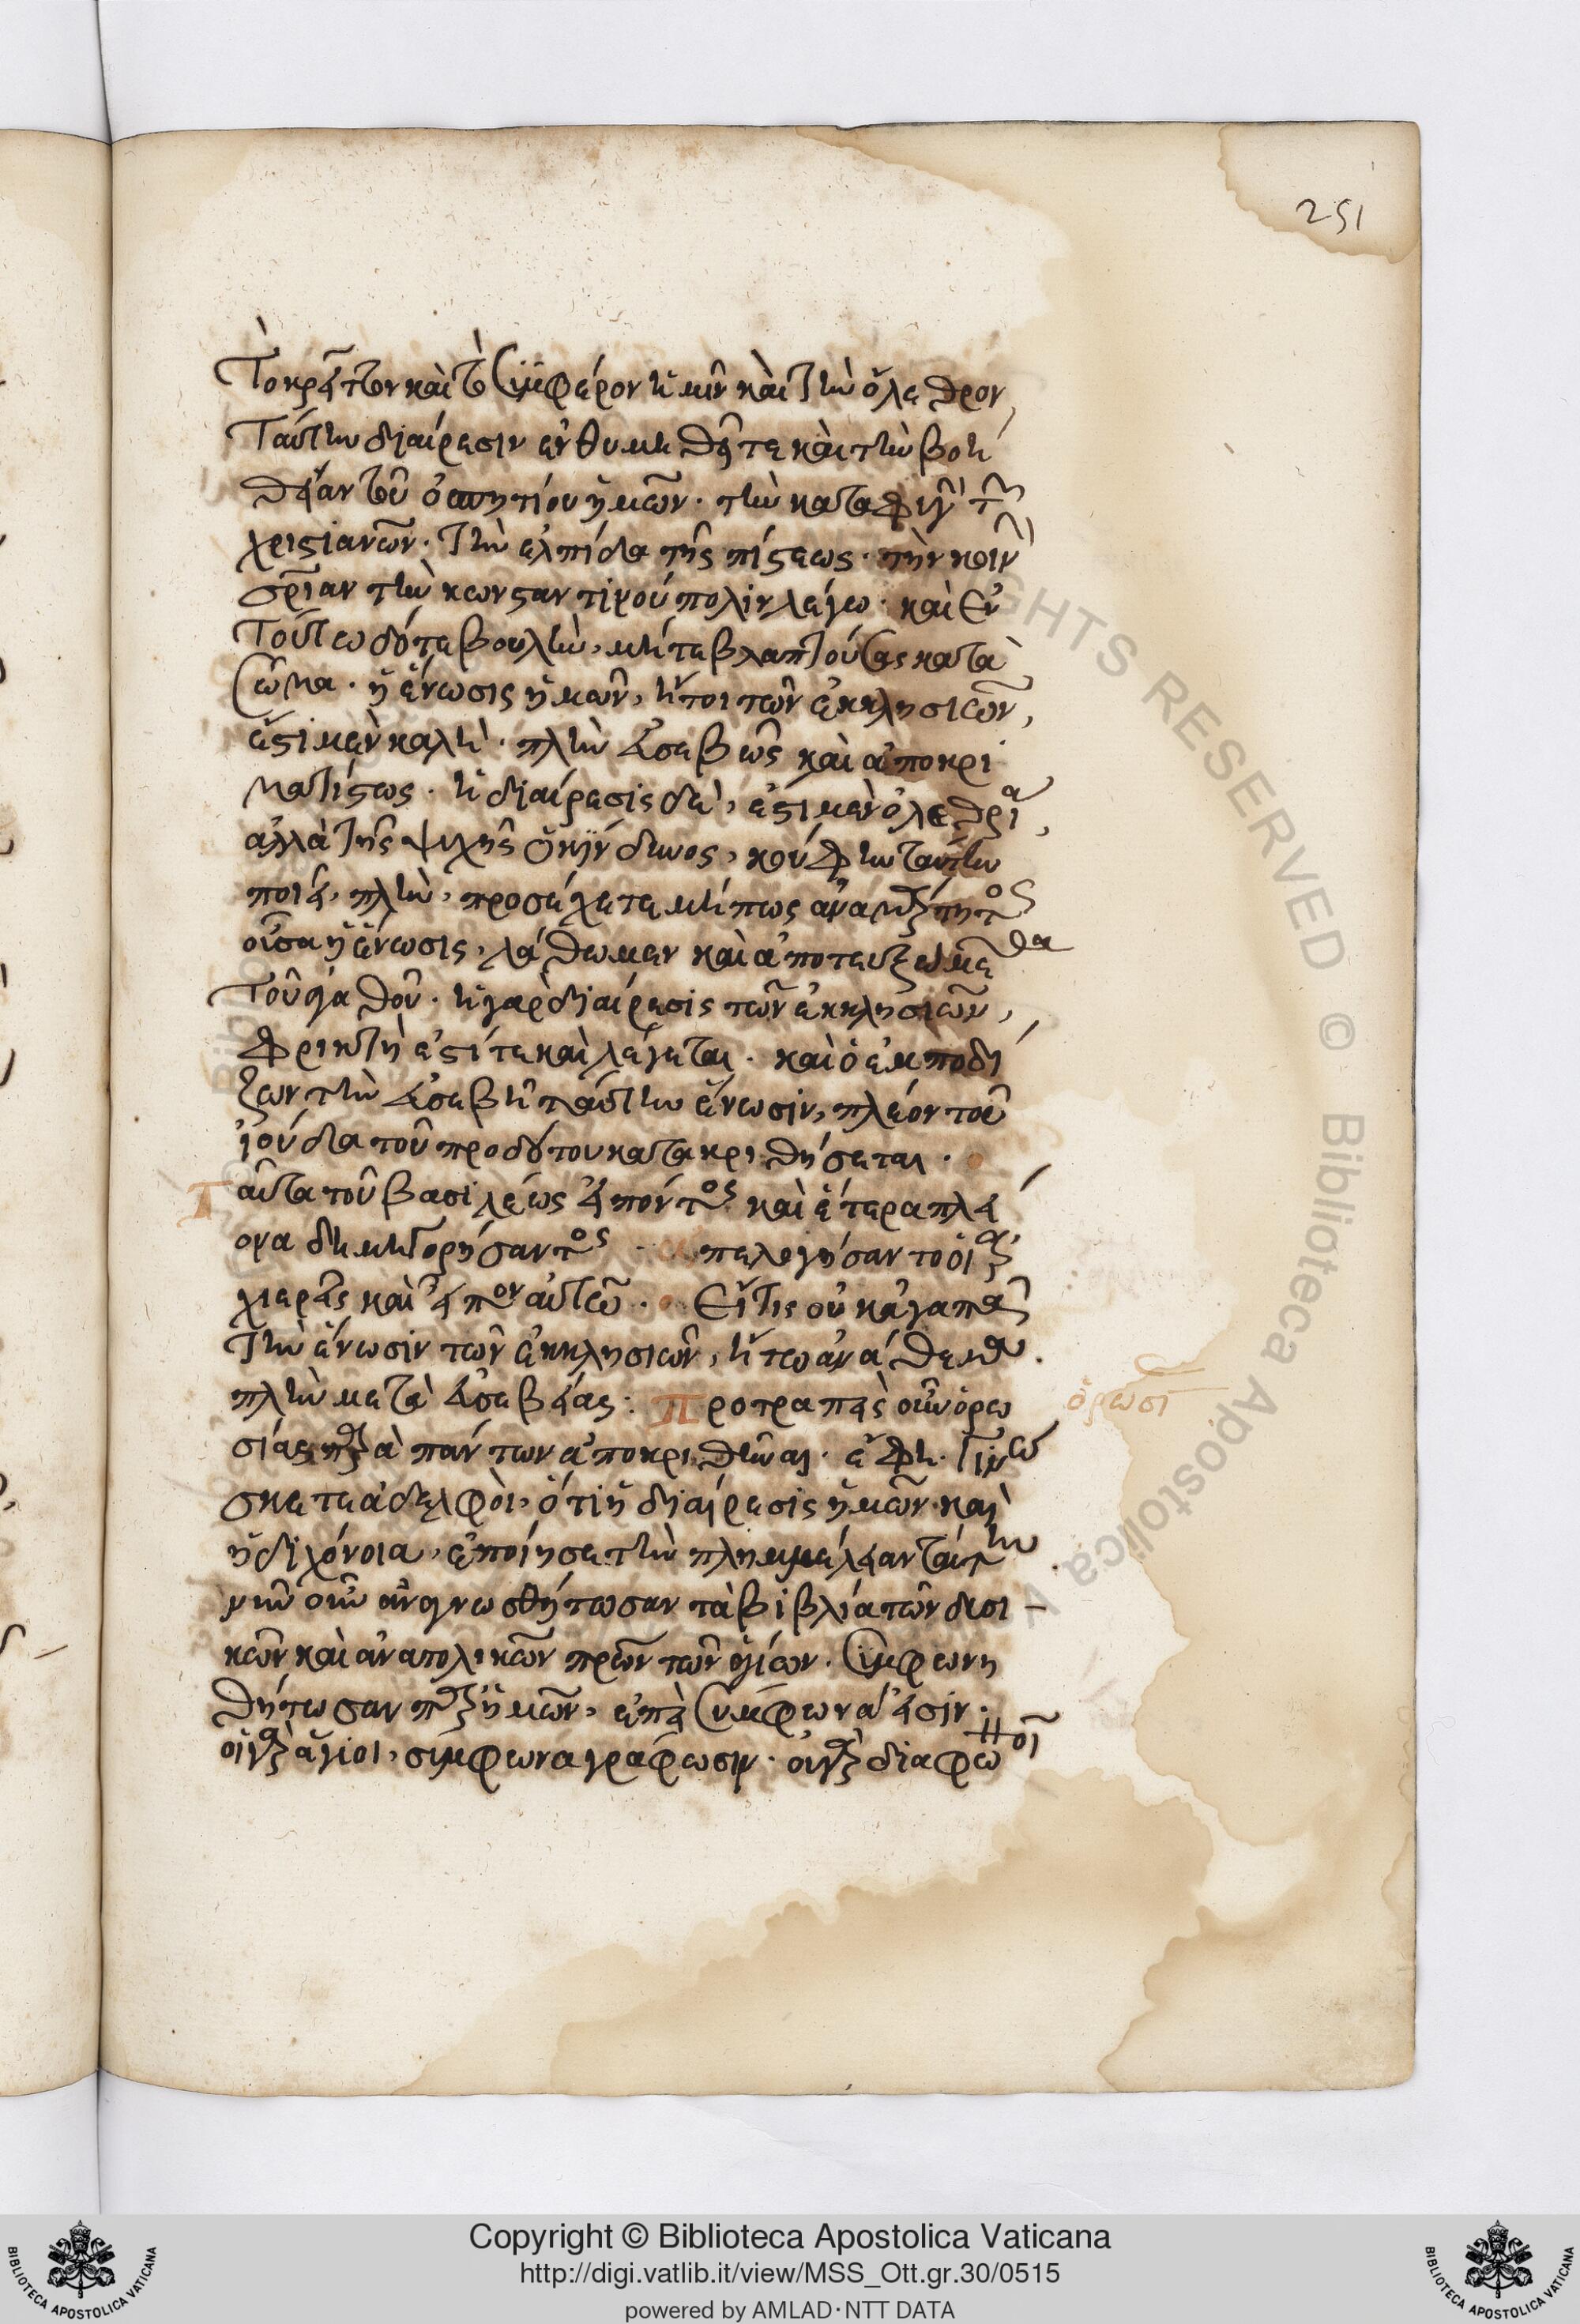 251
Τὸ κρεῖττον καὶ τὸ συμφέρον ἡμῖν καὶ τὴν ὄλεθρον
ταύτην διαίρεσιν ἐνθυμηθεῖτε καὶ τὴν βοή
θειαν τοῦ ὁσπητίου ἡμῶν. τὴν καταφυγὴν τῶν
χριστιανῶν. τὴν ἐλπίδα τῆς πίστεως. τὴν κοινὴν
σρίαν τὴν κωνσταντινούπολιν λέγω. καὶ ἐν
τούτω δότε βουλὴν, μήτε βλαπτούσας κατὰ
σῶμα. ἡ ἕνωσις ἡμῶν, ἤτοι τῶν ἐκκλησιῶν,
ἔστι μὲν καλὴ. πλὴν εὐσεβῶς καὶ ἀποκρι
ματίστως. ἡ διαίρεσις δὲ, ἔστι μὲν ὀλεθρία,
ἀλλὰ τῆς ψυχῆς ὁ κίνδυνος, κούφην ταύτην
ποιεῖ. πλὴν, προσέχετε μήπως ἀναμεταξύ τῆς
οὖσα ἡ ἕνωσις, λάθωμεν καὶ ἀποτευξώμεθα
τοῦ ἀγαθοῦ. ἡ γὰρ διαίρεσις τῶν ἐκκλησιῶν,
φρικτὴ ἐστί τε καὶ λέγεται. καὶ ὁ ἐμποδί
ζων τὴν εὐσεβῆ ταύτην ἕνωσιν, πλέον τοῦ
ἰούδα τοῦ προδότου κατακριθήσεται.
Ταῦτα τοῦ βασιλέως εἰπόντος καὶ ἕτερα πλεί
ονα δημηγορήσαντος. ἀπελογήσαντο οἱ ἀρ
χιερεῖς καὶ εἶπον αὐτῶ. Εἴ τις οὐκ ἀγαπᾶ
τὴν ἕνωσιν τῶν ἐκκλησιῶν, ἤτω ἀνάθεμα.
πλὴν μετὰ εὐσεβείας: Προτραπεὶς οὖν ὁ ρω
ὁρωσι
σίας παρὰ πάντων ἀποκριθῆναι. ἔφη. Γινώ
σκετε ἀδελφοὶ, ὅτι ἡ διαίρεσις ἡμῶν καὶ
ἡ διχόνοια, ἐποίησε τὴν πλημμέλειαν ταύτην.
νῦν οὖν ἀναγνωσθήτωσαν τὰ βιβλία τῶν δυσι
κῶν καὶ ἀνατολικῶν πρων τῶν ἁγίων. συμφωνη
θήτωσαν παρ ἡμῶν, ἐπεὶ σύμφωνά εἰσιν.
οἱ γὰρ ἅγιοι, σύμφωνα γράφωσιν. οἱ γὰρ διαφω
Copyright © Biblioteca Apostolica Vaticana
http://digi.vatlib.it/view/MSS_Ott.gr.30/0515
powered by AMLAD·NTT DATA
BIBLIOTECA APOSTOLICA VATICANA
BIBLIOTECA APOSTOLICA VATICANA